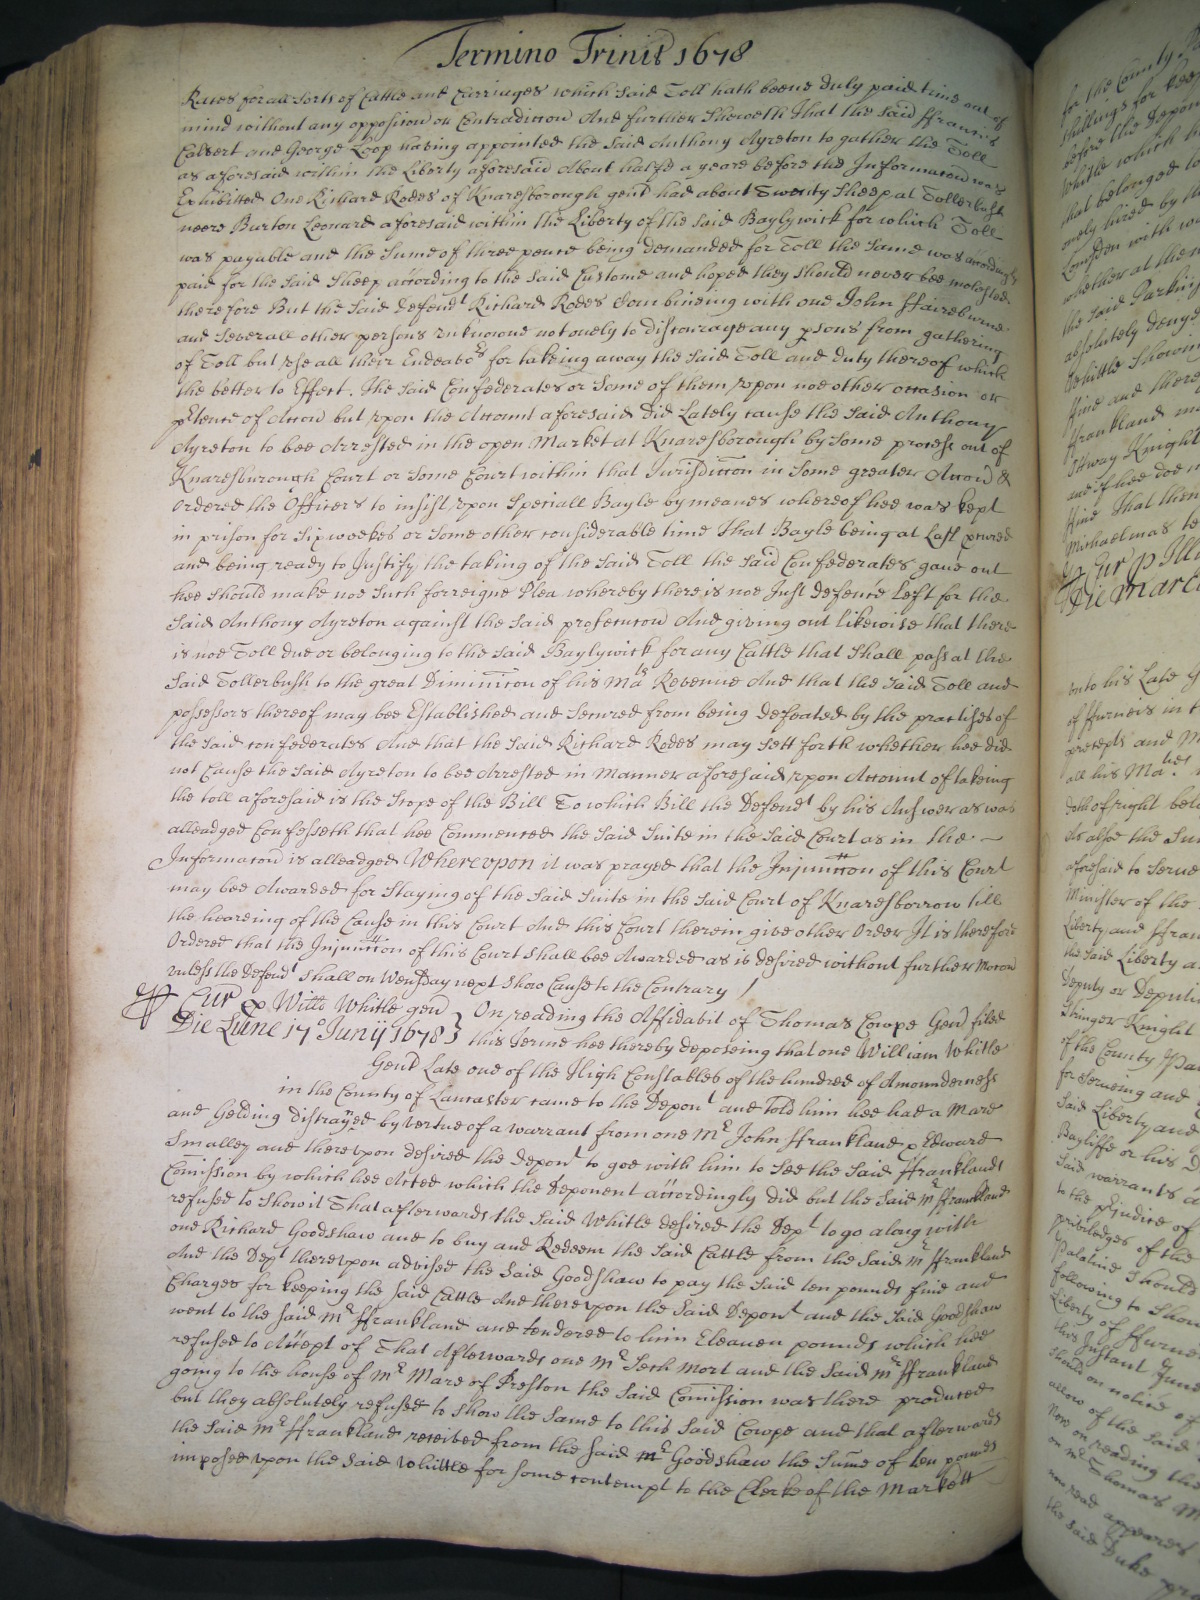 Termino Trinit 1678
Rates for all sorts of Cattle and Carriages which said Toll hath beene duly paid time out of
mind without any opposicon or Contradiccon And further Sheweth That the said ffrancis
Calvert and George Loop having appointed the said Anthony Ayreton to gather the Toll
as aforesaid within the Liberty aforesaid About halfe a yeare before the Informacon was
Exhibitted One Richard Rodes of Knaresborough gent had about Twenty Sheep at Tollerbush
neere Burton Leonard aforesaid within the Liberty of the said Baylywick for which Toll
was payable and the Sume of three pence being demanded for Toll the same was accordingly
paid for the said Sheep according to the said Custome and hoped they should never bee molested
therefore But the said Defendt Richard Rodes Combineing with one John ffaireburne
and severall other persons unknowne not onely to discourage any psons from gathering
of Toll but use all their Endeabors for takeing away the said Toll and duty thereof which
the better to Effect. The said Confederates or some of them upon noe other occasion or
ptence of Accon but upon the Account aforesaid did Lately cause the said Anthony
Ayreton to bee Arrested in the open Market at Knaresborough by some process out of
Knaresburough Court or some Court within that Jurisdiccon in some greater Accon &
Ordered the Officers to insist upon Speciall Bayle by meanes whereof hee was kept
in prison for Six weekes or some other considerable time That Bayle being at Last pcured
and being ready to Justify the taking of the said Toll the said Confederates gave out
hee should make noe such forreigne Plea whereby there is noe Just defence Left for the
said Anthony Ayreton against the said prosecucon And giving out likewise that there
is noe Toll due or belonging to the said Baylywick for any Cattle that shall pass at the
said Tollerbush to the great Diminucon of his Mats Revenue And that the said Toll and
possessors thereof may bee Established and secured from being defeated by the practises of
the said confederates And that the said Richard Rodes may sett forth whether hee did
not Cause the said Ayreton to bee Arrested in Manner aforesaid upon Account of takeing
the toll aforesaid is the Scope of the Bill To which Bill the Defendt by his Answer as was
alleadged Confesseth that hee Commenced the said Suite in the said Court as in the
Informacon is alleadged Whereupon it was prayed that the Injunccon of this Court
may bee Awarded for Staying of the said Suite in the said Court of Knaresborrow till
the heareing of the Cause in this Court And this Court therein give other Order It is therefore
Ordered that the Injunccon of this Court shall bee Awarded as is desired without further Mocon
unless the Defendt shall on Wensday next show Cause to the Contrary
Cur p Willo Whitle gen
Die Lune 17o Junij 1678
On reading the Affidabit of Thomas Cowpe Gent filed
this Terme hee thereby deposeing that one William Whitle
Gent Late one of the High Constables of the hundred of Amounderness
in the County of Lancaster came to the Depont and Told him hee had a Mare
and Gelding distrayed by vertue of a warrant from one Mr John ffrankland p Edward
Smalley and thereupon desired the Deponnt to goe with him to See the said ffranklands
Comission by which hee Acted which the Deponent accordingly did but the said Mr ffrankland
refused to show it That afterwards the said Whitle desired the Dept to go along with
one Richard Goodshaw and to buy and Redeem the said Cattle from the said Mr ffrankland
And the Dept thereupon advised the said Goodshaw to pay the said ten pounds fine and
Charges for keeping the said Cattle And thereupon the said Deponnt and the said Goodshaw
went to the said Mr ffrankland and tendered to him Eleaven pounds which hee
refused to Accept of That Afterwards one Mr Seth Mort and the said Mr ffrankland
going to the house of Mr Mare of Preston the said Comission was there produced
but they absolutely refused to show the Same to this said Cowpe and that afterwards
the said Mr ffrankland received from the said Mr Goodshaw the Sume of ten pounds
imposed upon the said Whittle for some contempt to the Clerke of the Markett
for the County
shillings for keep
before the Depon
Whitle which h
that belonged to
onely hired by th
Lowsden with w
whether at the m
the said Parkin
absolutely denye
Whittle Showing
ffine and there
ffrankland m
Ottway Knight
and if hee doe n
fine That then
Michaelmas te
Cur p Illu
Die Marci
unto his Late g
of ffurneis in t
precepts and M
all his Mabes
doth of right belo
As alsoe the Su
aforesaid to Serve
Minister of the
Liberty and ffran
the said Liberty a
Deputy or Deputi
Stringer Knight
of the County Pa
for serveing and
said Liberty and
Bayliffe or his D
said warrants a
to the pjudice of
priviledges of the
Palatine should
following to show
Liberty of ffurne
this Instant June
should on notice of
allow of the said
Now on reading the
on Mr Thomas M
now read appeares
the said Duke pr